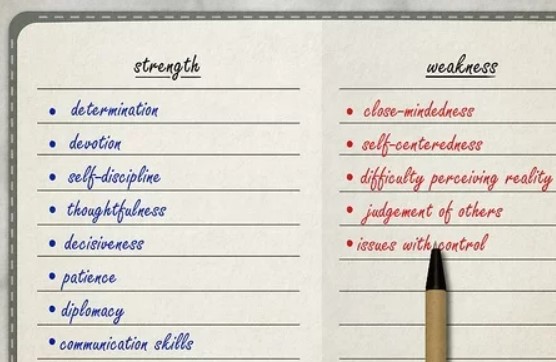 strength
determination
devotion
self-discipline
thoughtfulness
decisiveness
patience
diplomacy
communication skills
weakness
close-mindedness
self-centeredness
difficulty perceiving reality
judgement of others
issues with control